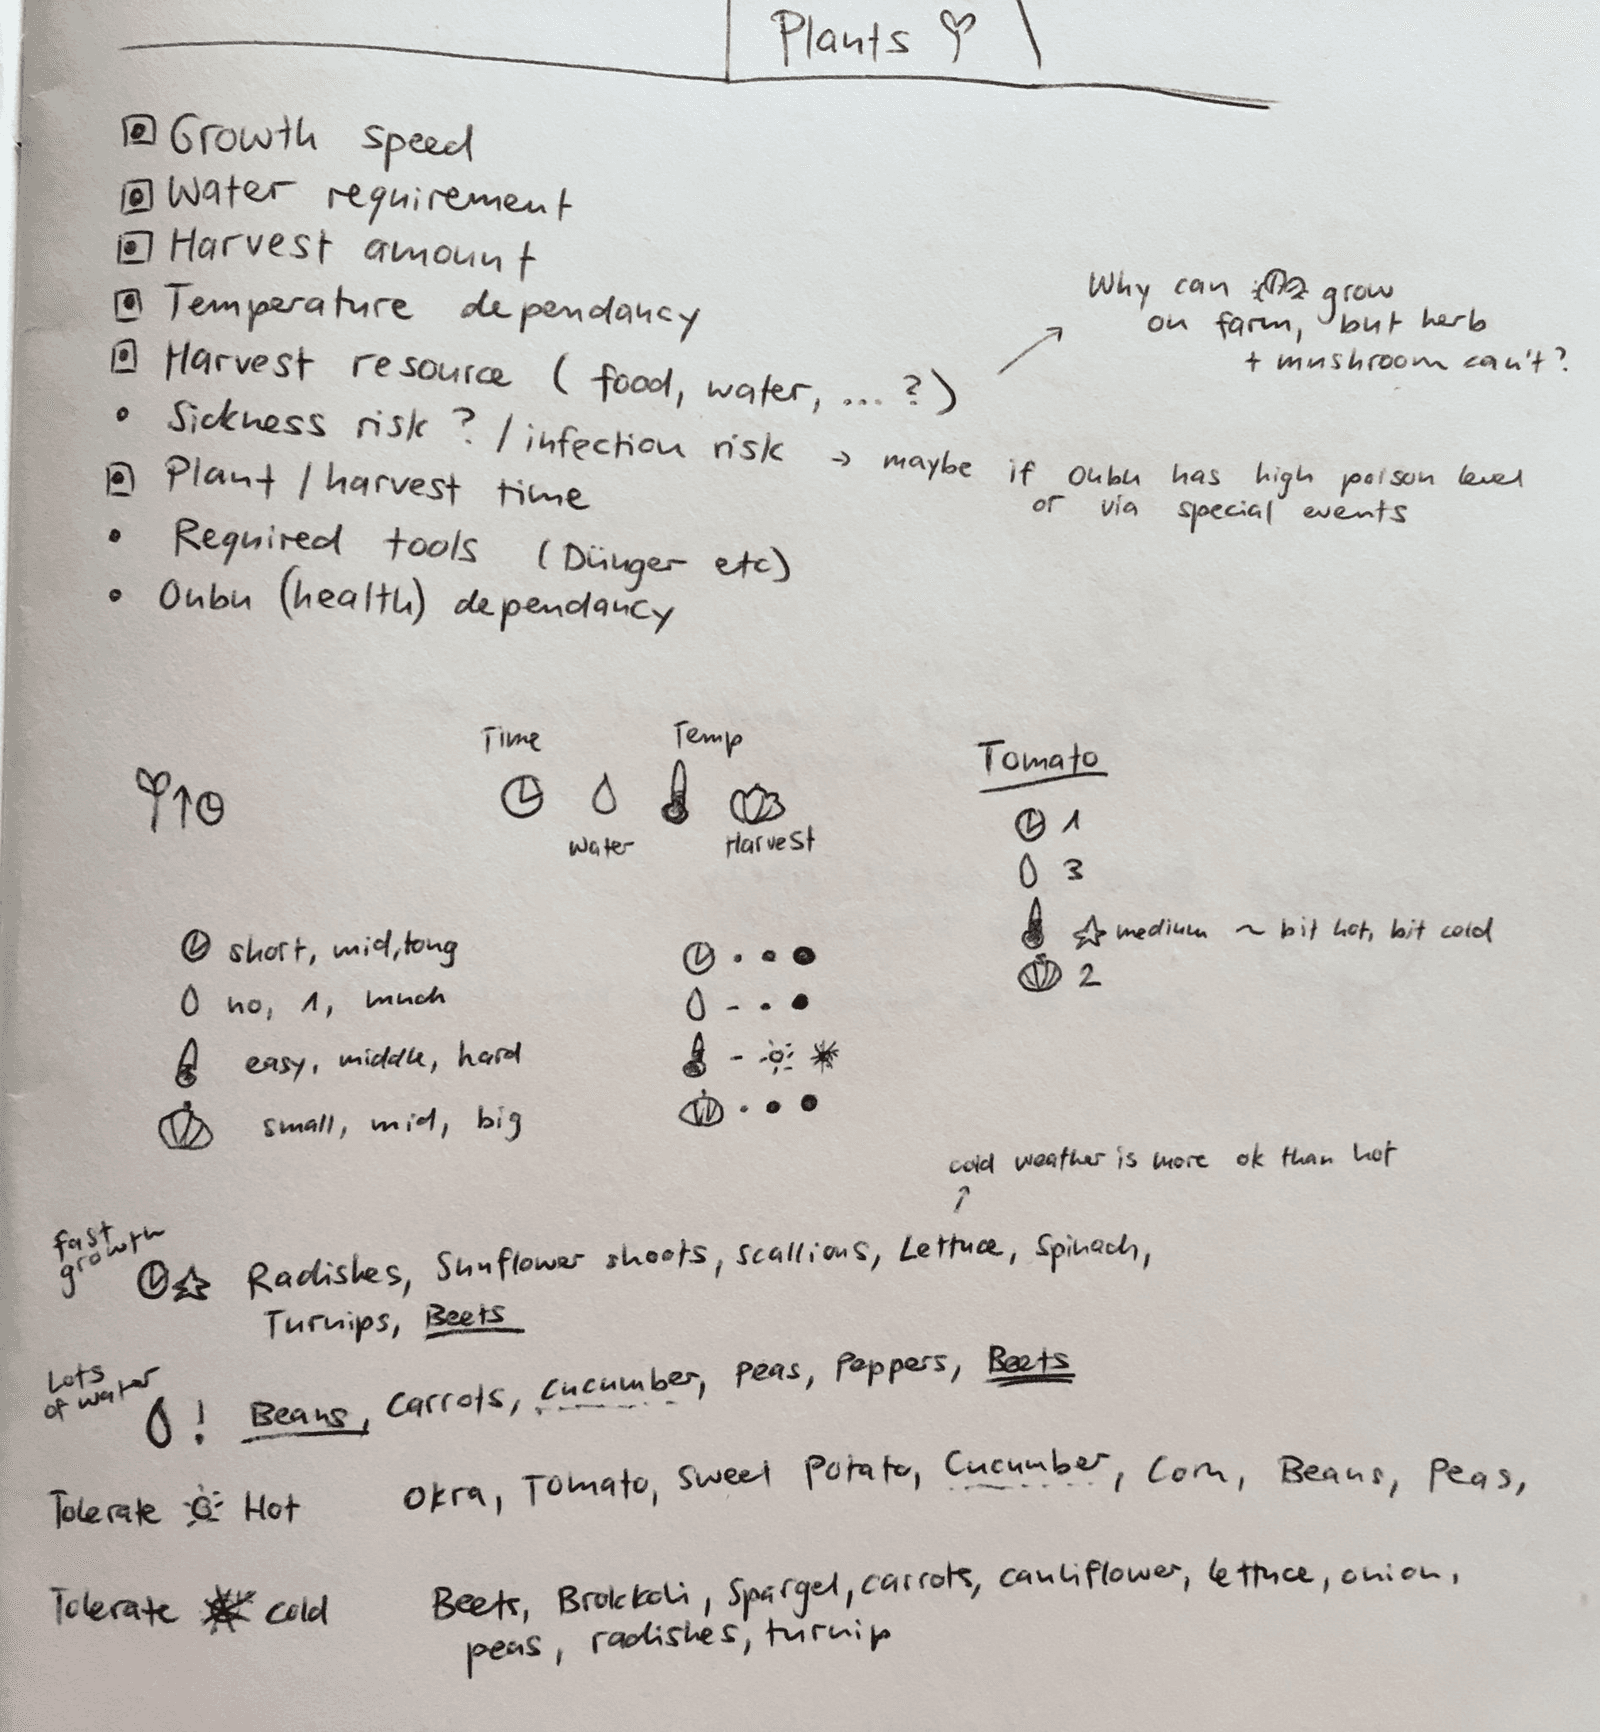 Plants
Growth speed
Water requirement
Harvest amount
Temperature dependancy
Harvest resource (food, water, ... ?)
Why can grow
on farm, but herb
+ mushroom can't?
• Sickness risk ? / infection risk → maybe if Oubu has high poison level
or via special events
Plant / harvest time
• Required tools (Dünger etc)
• Oubu (health) dependancy
Time
Temp
Water
Harvest
Tomato
1
3
medium ~ bit hot, bit cold
2
short, mid, long
no, 1, much
easy, middle, hard
small, mid, big
cold weather is more ok than hot
fast
growth
Radishes, Sunflower shoots, scallions, Lettuce, Spinach,
Turnips, Beets
Lots
of water
! Beans, Carrots, Cucumber, Peas, Peppers, Beets
Tolerate Hot Okra, Tomato, Sweet Potato, Cucumber, Corn, Beans, Peas,
Tolerate cold Beets, Brokkoli, Spargel, carrots, cauliflower, lettuce, onion,
peas, radishes, turnip